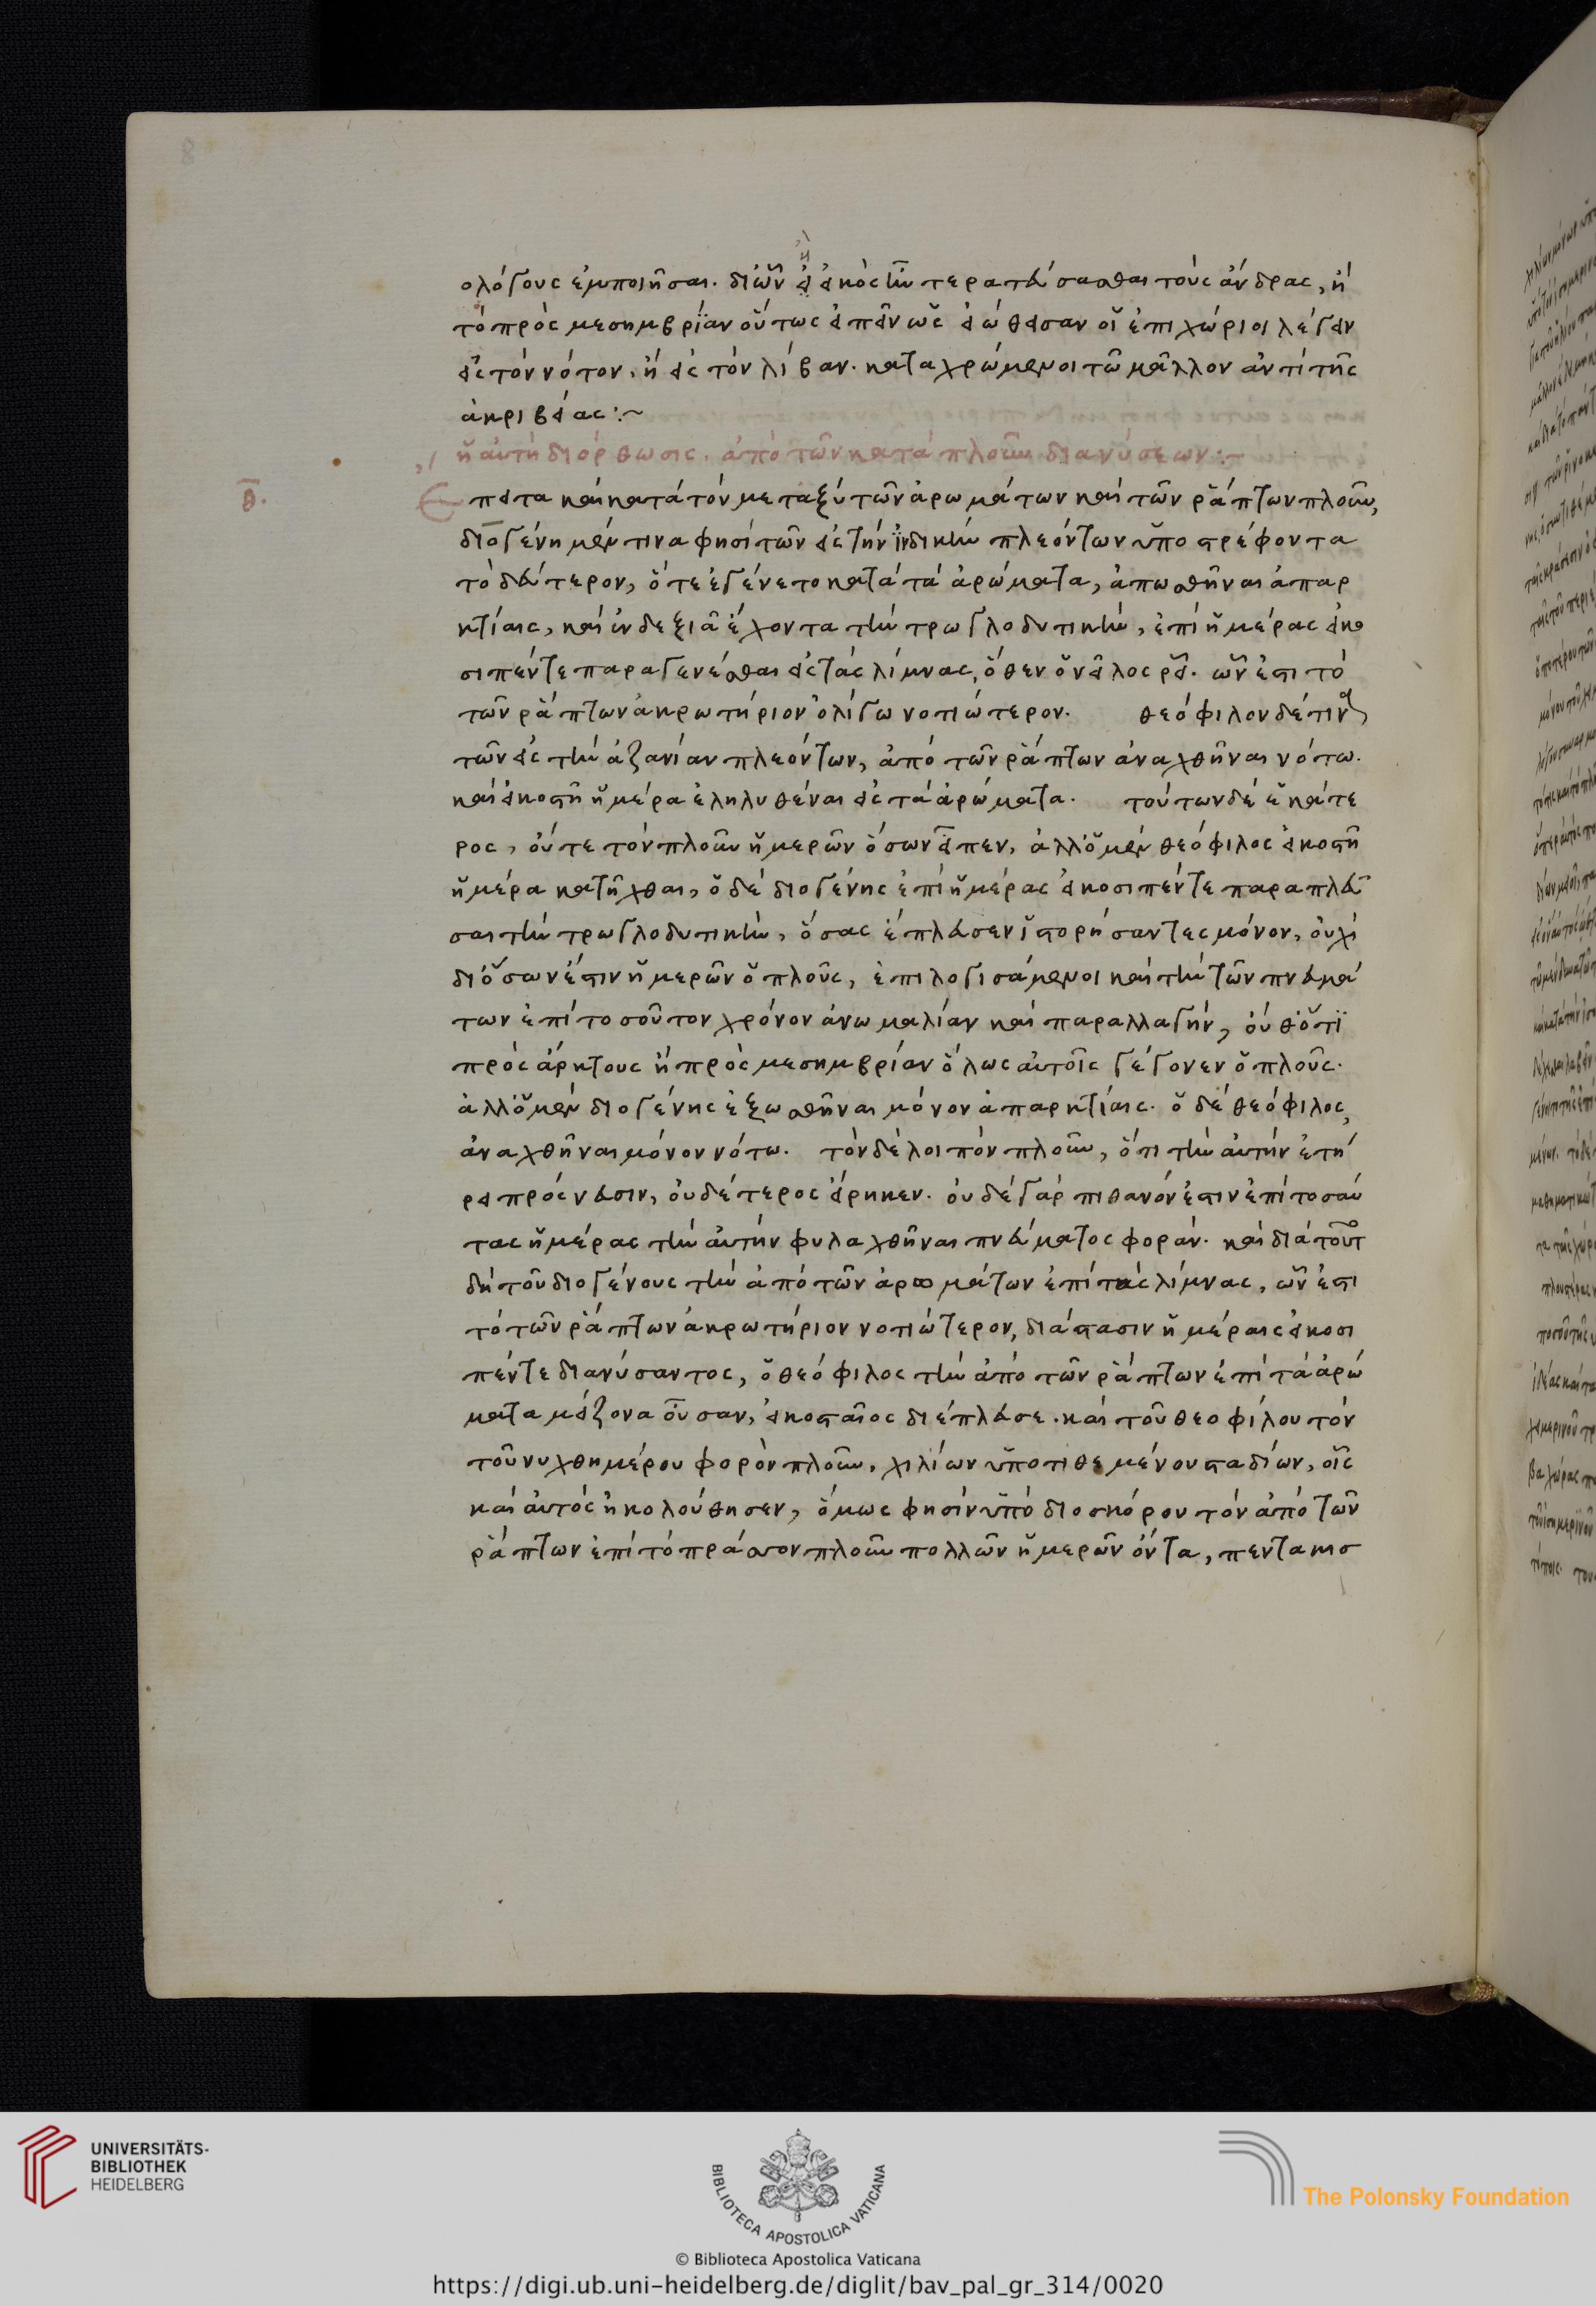 8
ολόγους ἐμποιῆσαι. δι ὧν ἢ εἰκὸς ἦν τερατεύσασθαι τοὺς ἄνδρας, ἢ
τὸ πρὸς μεσημβρίαν οὕτως εἰπεῖν ὡς εἰώθεισαν οἱ ἐπιχώριοι λέγειν
εἰς τὸν νότον. ἢ εἰς τὸν λίβαν. καταχρώμενοι τῶ μᾶλλον ἀντὶ τῆς
ἀκριβείας :~
ἡ αὐτὴ διόρθωσις. ἀπὸ τῶν κατὰ πλοῦν διανύσεων :~
θ.
Ἔπειτα καὶ κατὰ τὸν μεταξὺ τῶν ἀρωμάτων καὶ τῶν ῥάπτων πλοῦν,
διογένη μέν τινα φησὶ τῶν εἰς τὴν ἰνδικὴν πλεόντων ὑποστρέφοντα
τὸ δεύτερον, ὅτε ἐγένετο κατὰ τὰ ἀρώματα, ἀπωσθῆναι ἀπαρ
κτίαις, καὶ ἐν δεξιᾶ ἔχοντα τὴν τρωγλοδυτικὴν, ἐπὶ ἡμέρας εἰκο
σιπέντε παραγενέσθαι εἰς τὰς λίμνας, ὅθεν ὁ νεῖλος ῥεῖ. ὧν ἐστι τὸ
τῶν ῥάπτων ἀκρωτήριον ὀλίγω νοτιώτερον. θεόφιλον δέ τινα
τῶν εἰς τὴν ἀζανίαν πλεόντων, ἀπὸ τῶν ῥάπτων ἀναχθῆναι νότω.
καὶ εἰκοστῆ ἡμέρα ἐληλυθέναι εἰς τὰ ἀρώματα. τούτων δὲ ἑκάτε
ρος, οὔτε τὸν πλοῦν ἡμερῶν ὅσων εἶπεν, ἀλλ ὁ μὲν θεόφιλος εἰκοστῆ
ἡμέρα κατῆχθαι, ὁ δὲ διογένης ἐπὶ ἡμέρας εἰκοσιπέντε παραπλεῦ
σαι τὴν τρωγλοδυτικὴν, ὅσας ἔπλευσεν ἱστορήσαντες μόνον, οὐχὶ
δι ὅσων ἐστιν ἡμερῶν ὁ πλοῦς, ἐπιλογισάμενοι καὶ τὴν τῶν πνευμά
των ἐπὶ τοσοῦτον χρόνον ἀνωμαλίαν καὶ παραλλαγήν, οὐθ ὅτι
πρὸς ἄρκτους ἢ πρὸς μεσημβρίαν ὅλως αὐτοῖς γέγονεν ὁ πλοῦς.
ἀλλ ὁ μὲν διογένης ἐξωσθῆναι μόνον ἀπαρκτίαις. ὁ δὲ θεόφιλος,
ἀναχθῆναι μόνον νότω. τὸν δὲ λοιπὸν πλοῦν, ὅτι τὴν αὐτὴν ἐτή
ρει πρόσνευσιν, οὐδέτερος εἴρηκεν. οὐδὲ γὰρ πιθανόν ἐστιν ἐπὶ τοσαύ
τας ἡμέρας τὴν αὐτὴν φυλαχθῆναι πνεύματος φοράν. καὶ διὰ τοῦτ
δὴ τοῦ διογένους τὴν ἀπὸ τῶν ἀρωμάτων ἐπὶ τὰς λίμνας, ὧν ἐστι
τὸ τῶν ῥάπτων ἀκρωτήριον νοτιώτερον, διάστασιν ἡμέραις εἰκοσι
πέντε διανύσαντος, ὁ θεόφιλος τὴν ἀπὸ τῶν ῥάπτων ἐπὶ τὰ ἀρώ
ματα μείζονα οὖσαν, εἰκοσταῖος διέπλευσε. καὶ τοῦ θεοφίλου τὸν
τοῦ νυχθημέρου φορὸν πλοῦν. χιλίων ὑποτιθεμένου σταδίων, οἷς
καὶ αὐτὸς ἠκολούθησεν, ὅμως φησὶν ὑπὸ διοσκόρου τὸν ἀπὸ τῶν
ῥάπτων ἐπὶ τὸ πράσον πλοῦν πολλῶν ἡμερῶν ὄντα, πεντακισ
UNIVERSITÄTS-
BIBLIOTHEK
HEIDELBERG
BIBLIOTECA APOSTOLICA VATICANA
The Polonsky Foundation
© Biblioteca Apostolica Vaticana
https://digi.ub.uni-heidelberg.de/diglit/bav_pal_gr_314/0020